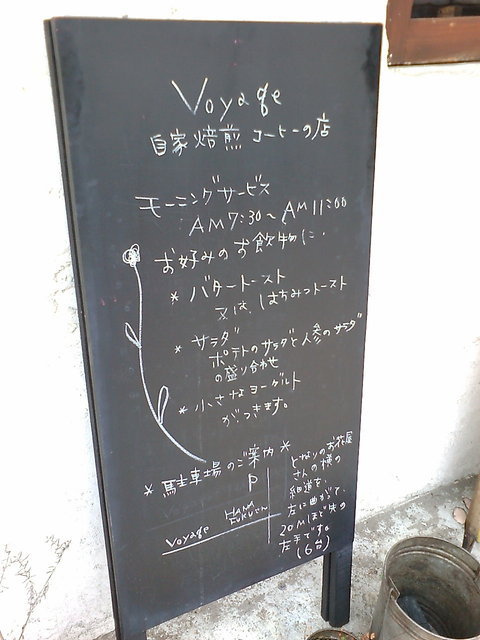 Voyage
自家焙煎コーヒーの店
モーニングサービス
AM7:30〜AM11:00
お好みのお飲物に、
* バタートースト
又は、はちみつトースト
* サラダ
ポテトのサラダと人参のサラダ
の盛り合わせ
* 小さなヨーグルト
がつきます。
* 駐車場のご案内 *
P
HANA
Voyage
となりのお花屋
さんの横の
細道を、
左に曲がって、
20Mほど先の
左手です。
(6台)